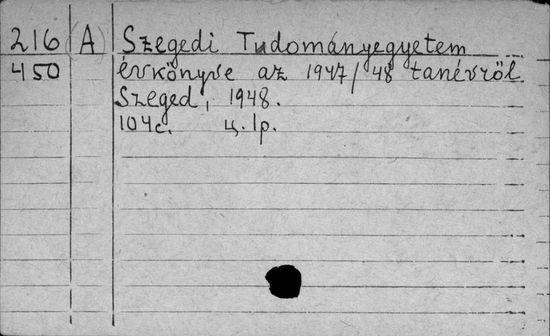 216 (A) Szegedi Tudományegyetem
450 évkönyve az 1947/48 tanévről
Szeged, 1948.
104c. ц. 1р.